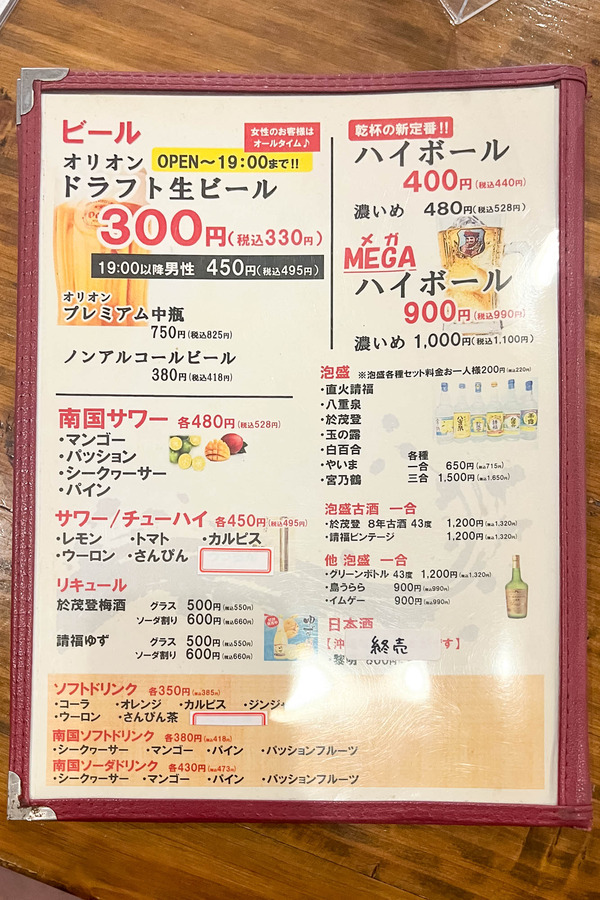 ビール
女性のお客様は
オールタイム♪
オリオン OPEN～19:00まで!!
ドラフト生ビール
300円(税込330円)
19:00以降男性 450円(税込495円)
オリオン
プレミアム中瓶
750円(税込825円)
ノンアルコールビール
380円(税込418円)
乾杯の新定番!!
ハイボール
400円(税込440円)
濃いめ 480円(税込528円)
メガ
MEGA
ハイボール
900円(税込990円)
濃いめ 1,000円(税込1,100円)
南国サワー 各480円(税込528円)
・マンゴー
・パッション
・シークヮーサー
・パイン
サワー/チューハイ 各450円(税込495円)
・レモン ・トマト ・カルピス
・ウーロン ・さんぴん
リキュール
於茂登梅酒 グラス 500円(税込550円)
ソーダ割り 600円(税込660円)
請福ゆず グラス 500円(税込550円)
ソーダ割り 600円(税込660円)
泡盛 ※泡盛各種セット料金お一人様200円(税込220円)
・直火請福
・八重泉
・於茂登
・玉の露
・白百合
・やいま
・宮乃鶴
各種
一合 650円(税込715円)
三合 1,500円(税込1,650円)
泡盛古酒 一合
・於茂登 8年古酒 43度 1,200円(税込1,320円)
・請福ビンテージ 1,200円(税込1,320円)
他 泡盛 一合
・グリーンボトル 43度 1,200円(税込1,320円)
・島うらら 900円(税込990円)
・イムゲー 900円(税込990円)
日本酒
【沖 終売 す】
ソフトドリンク 各350円(税込385円)
・コーラ ・オレンジ ・カルピス ・ジンジャ
・ウーロン ・さんぴん茶
南国ソフトドリンク 各380円(税込418円)
・シークヮーサー ・マンゴー ・パイン ・パッションフルーツ
南国ソーダドリンク 各430円(税込473円)
・シークヮーサー ・マンゴー ・パイン ・パッションフルーツ